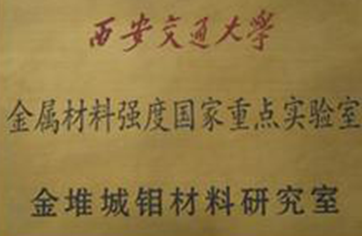 西安交通大学
金属材料强度国家重点实验室
金堆城钼材料研究室